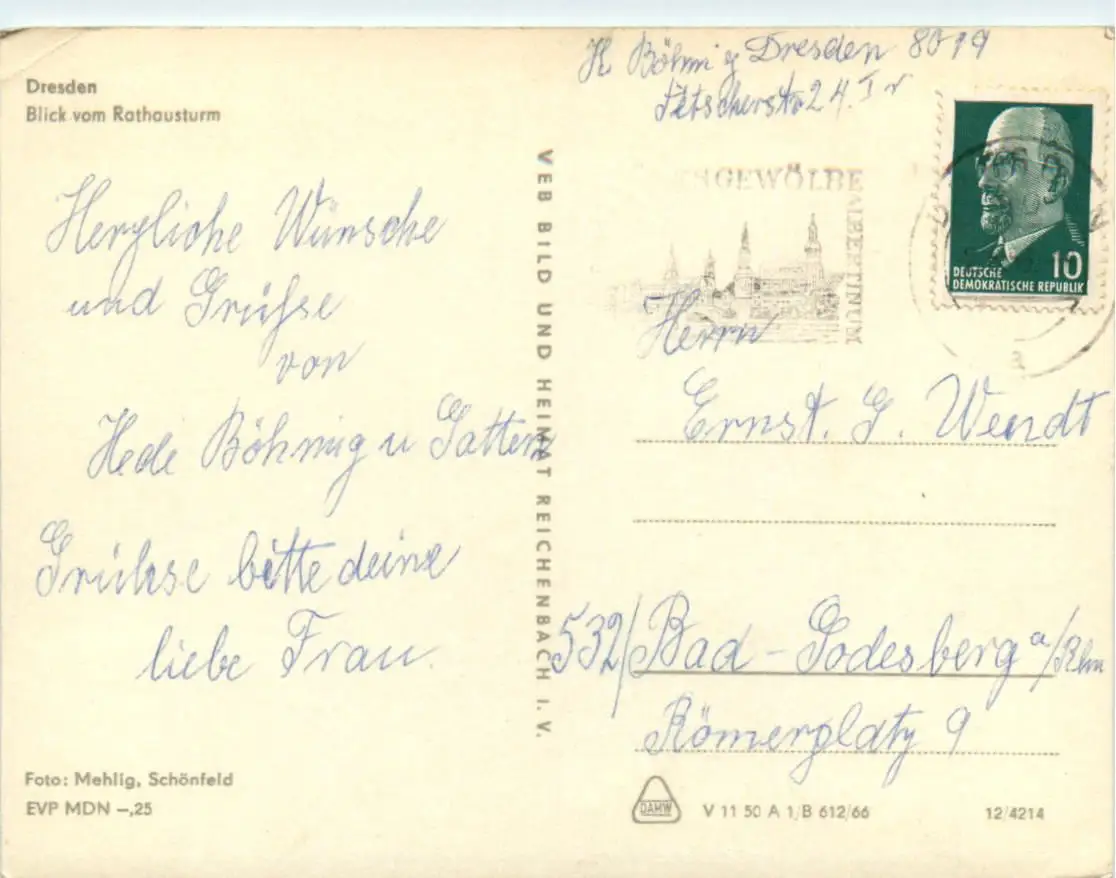 Dresden
Blick vom Rathausturm
Herzliche Wünsche
und Grüße
von
Hede Böhmig u Gatten
Grühse bitte deine
liebe Frau.
Foto: Mehlig, Schönfeld
EVP MDN –,25
VEB BILD UND HEIMAT REICHENBACH I. V.
H Böhmig Dresden 8019
24
GEWÖLBE
ALBERTINUM
DEUTSCHE
DEMOKRATISCHE REPUBLIK
10
a
Herrn
Ernst. G. Wendt
532/Bad-Godesberg a/Rhn
Römerplatz 9
DAHW
V 11 50 A 1/B 612/66
12/4214